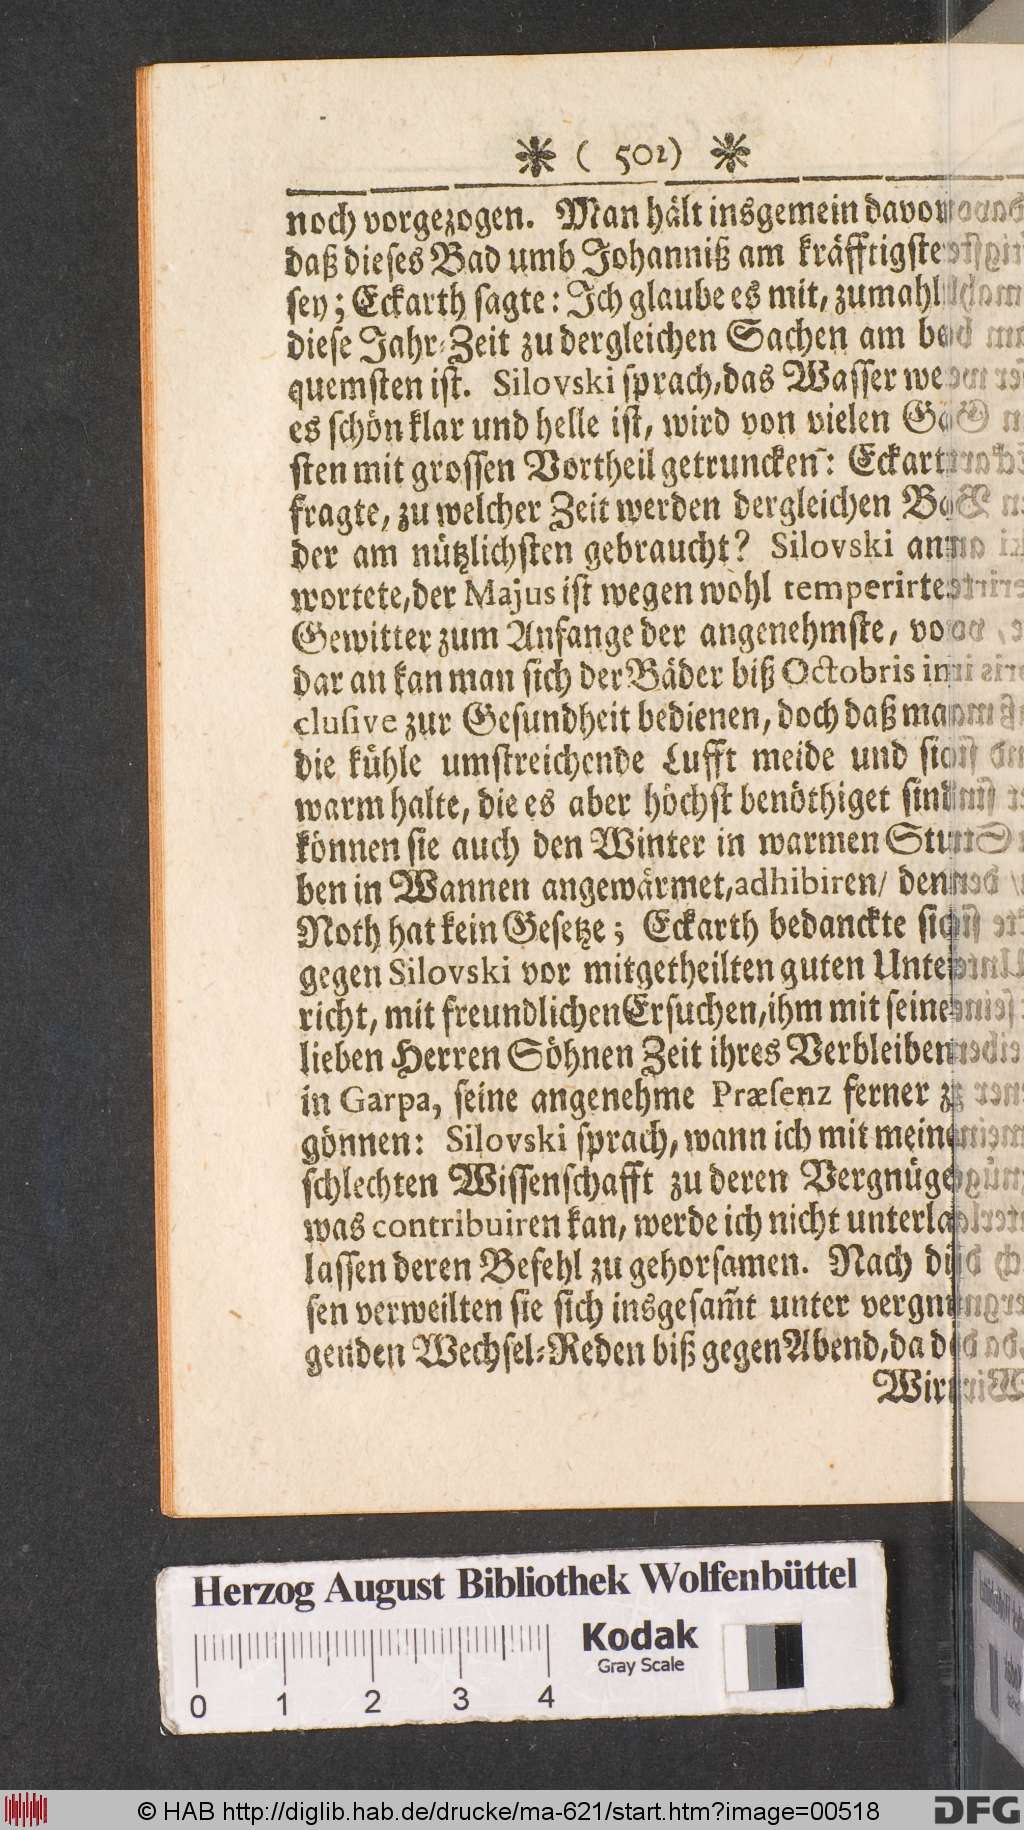 ❋ ( 502) ❋
noch vorgezogen. Man hält insgemein davon
daß dieses Bad umb Johanniß am kräfftigste
sey; Eckarth sagte: Ich glaube es mit, zumahl
diese Jahr-Zeit zu dergleichen Sachen am be
quemsten ist. Silovski sprach, das Wasser we
es schön klar und helle ist, wird von vielen Gä
sten mit grossen Vortheil getruncken: Eckart
fragte, zu welcher Zeit werden dergleichen Bä
der am nützlichsten gebraucht? Silovski ant
wortete, der Majus ist wegen wohl temperirte
Gewitter zum Anfange der angenehmste, vo
dar an kan man sich der Bäder biß Octobris in
clusive zur Gesundheit bedienen, doch daß man
die kühle umstreichende Lufft meide und sich
warm halte, die es aber höchst benöthiget sind
können sie auch den Winter in warmen Stu
ben in Wannen angewärmet, adhibiren/ denn
Noth hat kein Gesetze; Eckarth bedanckte sich
gegen Silovski vor mitgetheilten guten Unter
richt, mit freundlichen Ersuchen, ihm mit seine
lieben Herren Söhnen Zeit ihres Verbleiben
in Garpa, seine angenehme Præsenz ferner z
gönnen: Silovski sprach, wann ich mit meine
schlechten Wissenschafft zu deren Vergnüge
was contribuiren kan, werde ich nicht unterla
lassen deren Befehl zu gehorsamen. Nach di
sen verweilten sie sich insgesam̃t unter vergnü
genden Wechsel-Reden biß gegen Abend, da de
Wirt
Herzog August Bibliothek Wolfenbüttel
Kodak
Gray Scale
0 1 2 3 4
© HAB http://diglib.hab.de/drucke/ma-621/start.htm?image=00518
DFG